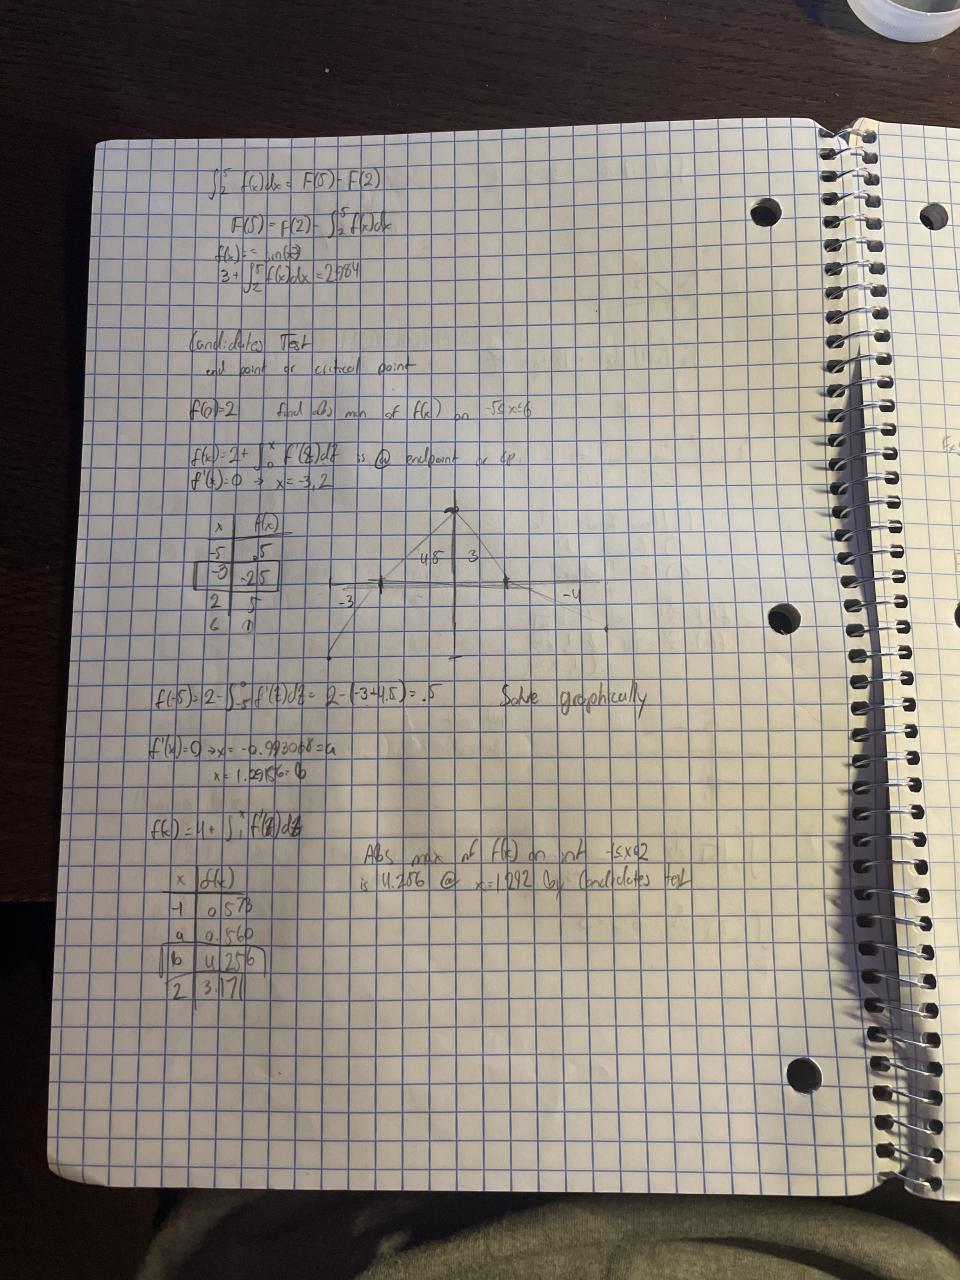 ∫₂⁵ f(x)dx = F(5) - F(2)
F(5) = F(2) - ∫₂⁵ f(x)dx
f(x) =
3 + ∫₂⁵ f(x)dx = 2.984
Candidates Test
end point or critical point
f(0)=2 find abs min of f(x) on -5≤x≤6
f(x)=2+ ∫₀ˣ f'(z)dz is @ endpoint or cp.
f'(x)=0 → x=-3,2
x f(x)
-5 .5
-3 -2.5
2 5
6 1
4.5 3
-3 -4
f(-5)=2-∫₋₅⁰ f'(z)dz= 2-(-3+4.5)=.5 Solve graphically
f'(x)=0 → x= -0.993068=a
x= 1.29156=b
f(x)=4+ ∫₁ˣ f'(z)dz
Abs max of f(x) on int -1≤x≤2
is 4.256 @ x=1.292 by Candidates test
x f(x)
-1 0.573
a 0.560
b 4.256
2 3.171